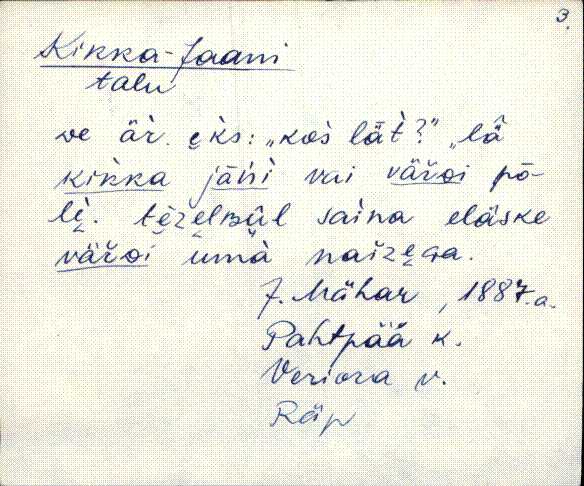 3.
Kikka-Jaani
talu
ve är. ęks: „kos lät̀?" „lä
kikka jāńi vai väŕǵi pō-
lę̀. tęzęlʙūl saina eläske
väŕǵi ümà naiźęɢa.
J. Mähar, 1887. a.
Pahtpää k.
Veriora v.
Räp